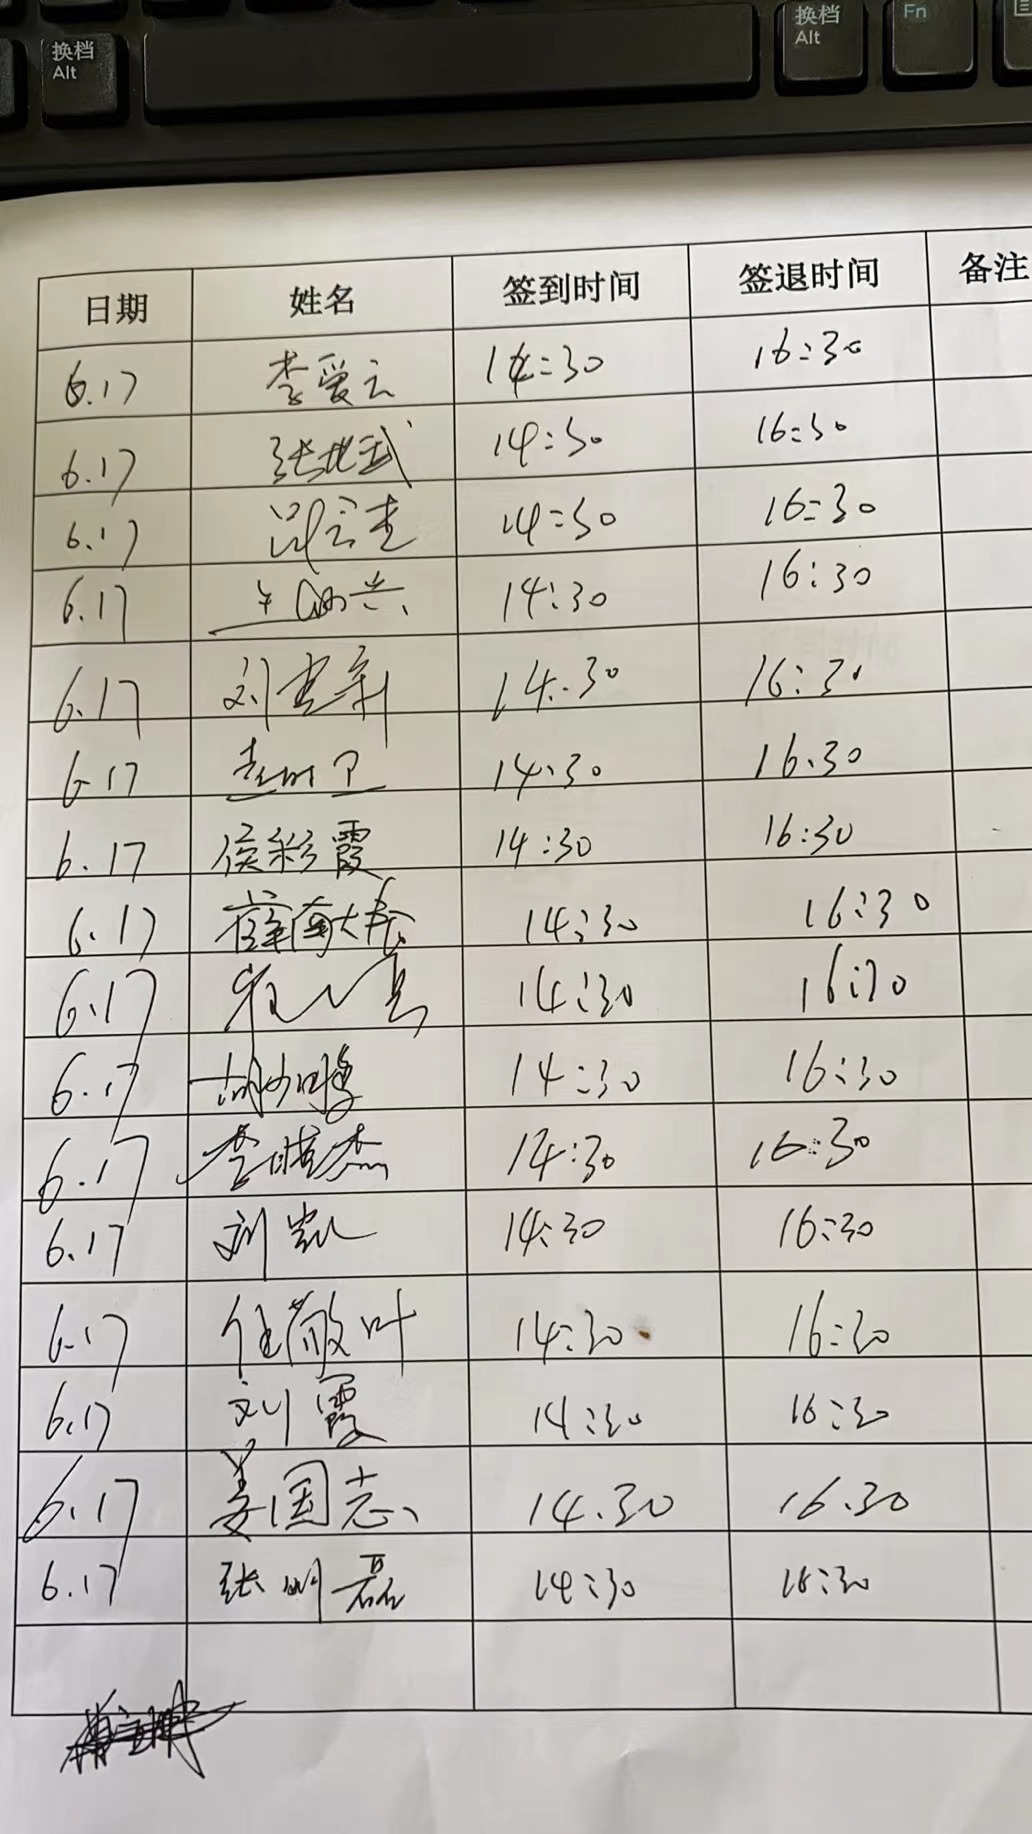 换档 Alt 换档 Alt Fn
日期 姓名 签到时间 签退时间 备注
6.17 李爱云 14:30 16:30
6.17 张北武 14:30 16:30
6.17 14:30 16:30
6.17 14:30 16:30
6.17 刘 新 14:30 16:30
6.17 14.30 16.30
6.17 侯彩霞 14:30 16:30
6.17 薛南 14:30 16:30
6.17 14:30 16:30
6.17 胡 14:30 16:30
6.17 李晓杰 14:30 16:30
6.17 刘凯 14:30 16:30
6.17 任敬叶 14:30 16:30
6.17 刘霞 14:30 16:30
6.17 姜国志 14.30 16.30
6.17 张明磊 14:30 16:30